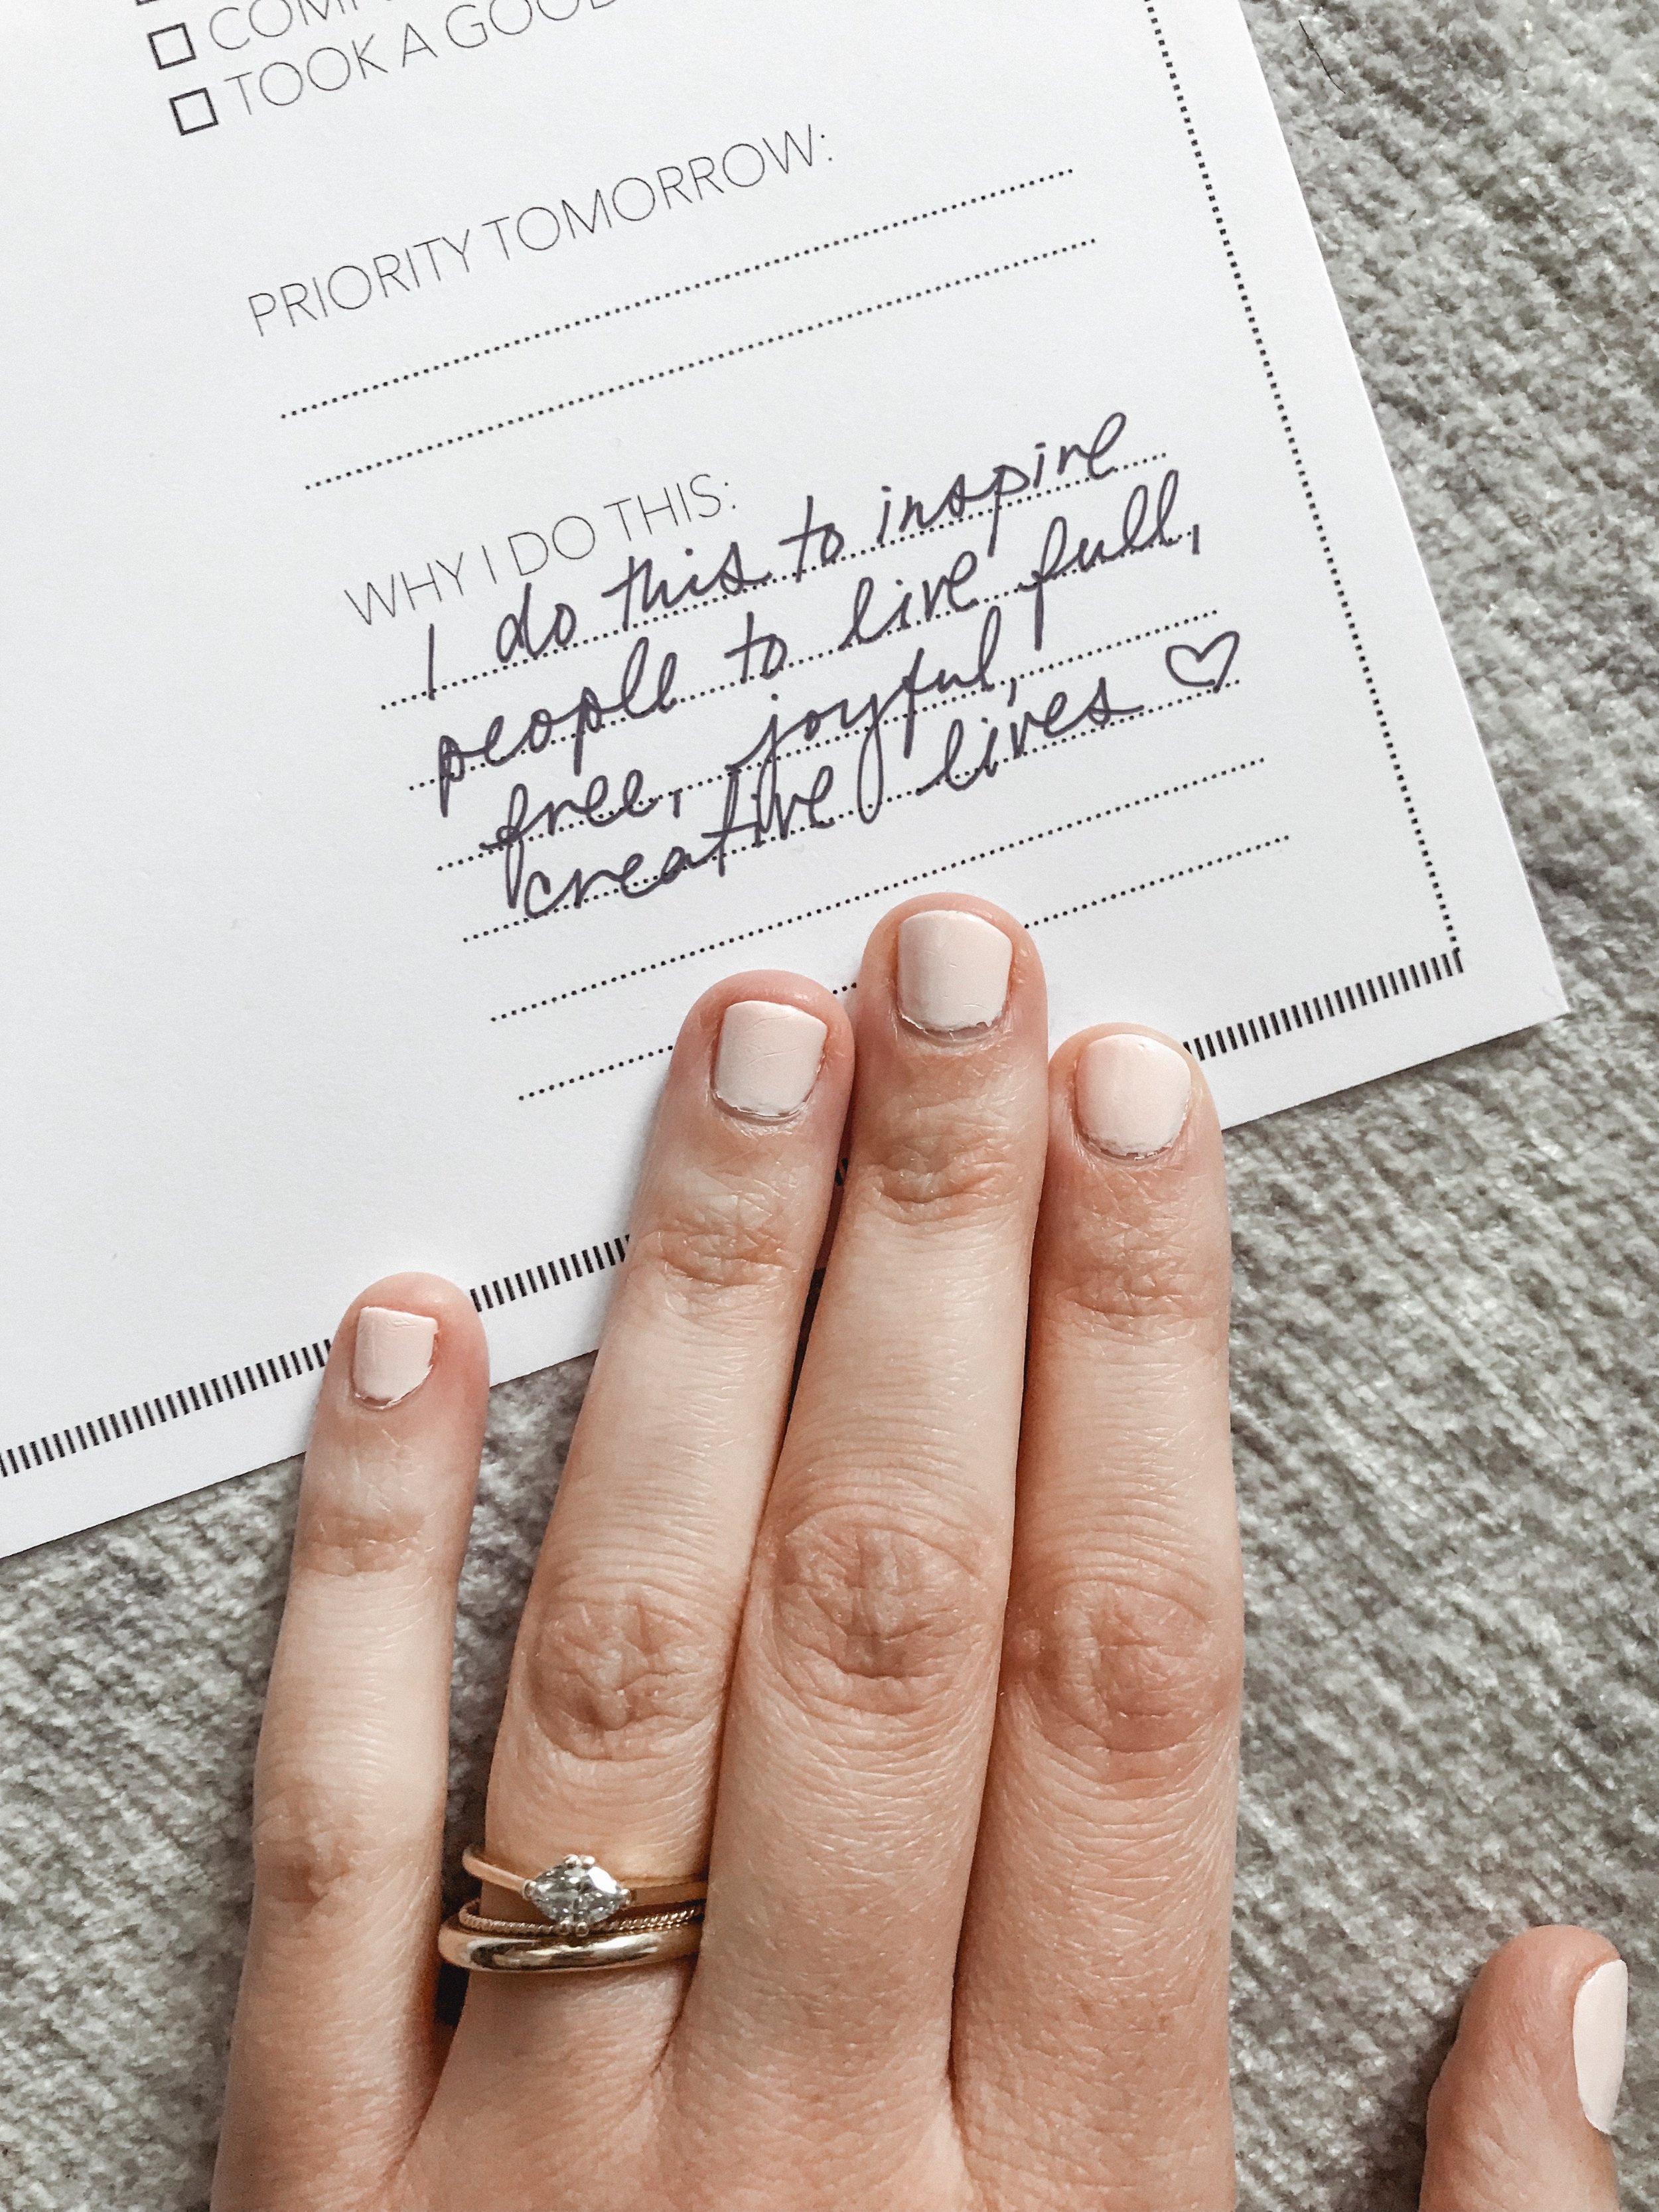 TOOK A GOOD
PRIORITY TOMORROW:
WHY I DO THIS:
I do this to inspire
people to live full,
free, joyful,
creative lives ♡